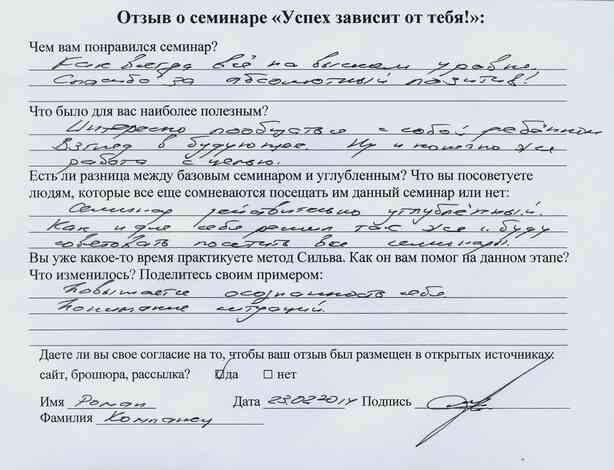 Отзыв о семинаре «Успех зависит от тебя!»:
Чем вам понравился семинар?
Как всегда всё на высоком уровне.
Спасибо за абсолютный позитив!
Что было для вас наиболее полезным?
Интересно пообщаться с собой ребёнком
Взгляд в будующее. Ну и конечно же
работа с целью.
Есть ли разница между базовым семинаром и углубленным? Что вы посоветуете
людям, которые все еще сомневаются посещать им данный семинар или нет:
Семинар действительно углублённый.
Как и для себя решил так же и буду
советовать посетить все семинары.
Вы уже какое-то время практикуете метод Сильва. Как он вам помог на данном этапе?
Что изменилось? Поделитесь своим примером:
Повышается осознанность себя.
Понимание ситуаций.
Даете ли вы свое согласие на то, чтобы ваш отзыв был размещен в открытых источниках:
сайт, брошюра, рассылка? ☑да ☐ нет
Имя Роман Дата 23.02.2014 Подпись
Фамилия